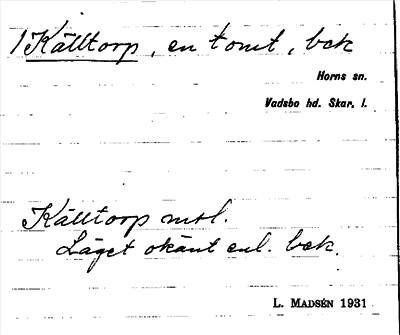 1 Källtorp, en tomt, bek
Horns sn.
Vadsbo hd. Skar. l.
Källtorp msl.
Läget okänt enl. bek.
L. MADSÉN 1931